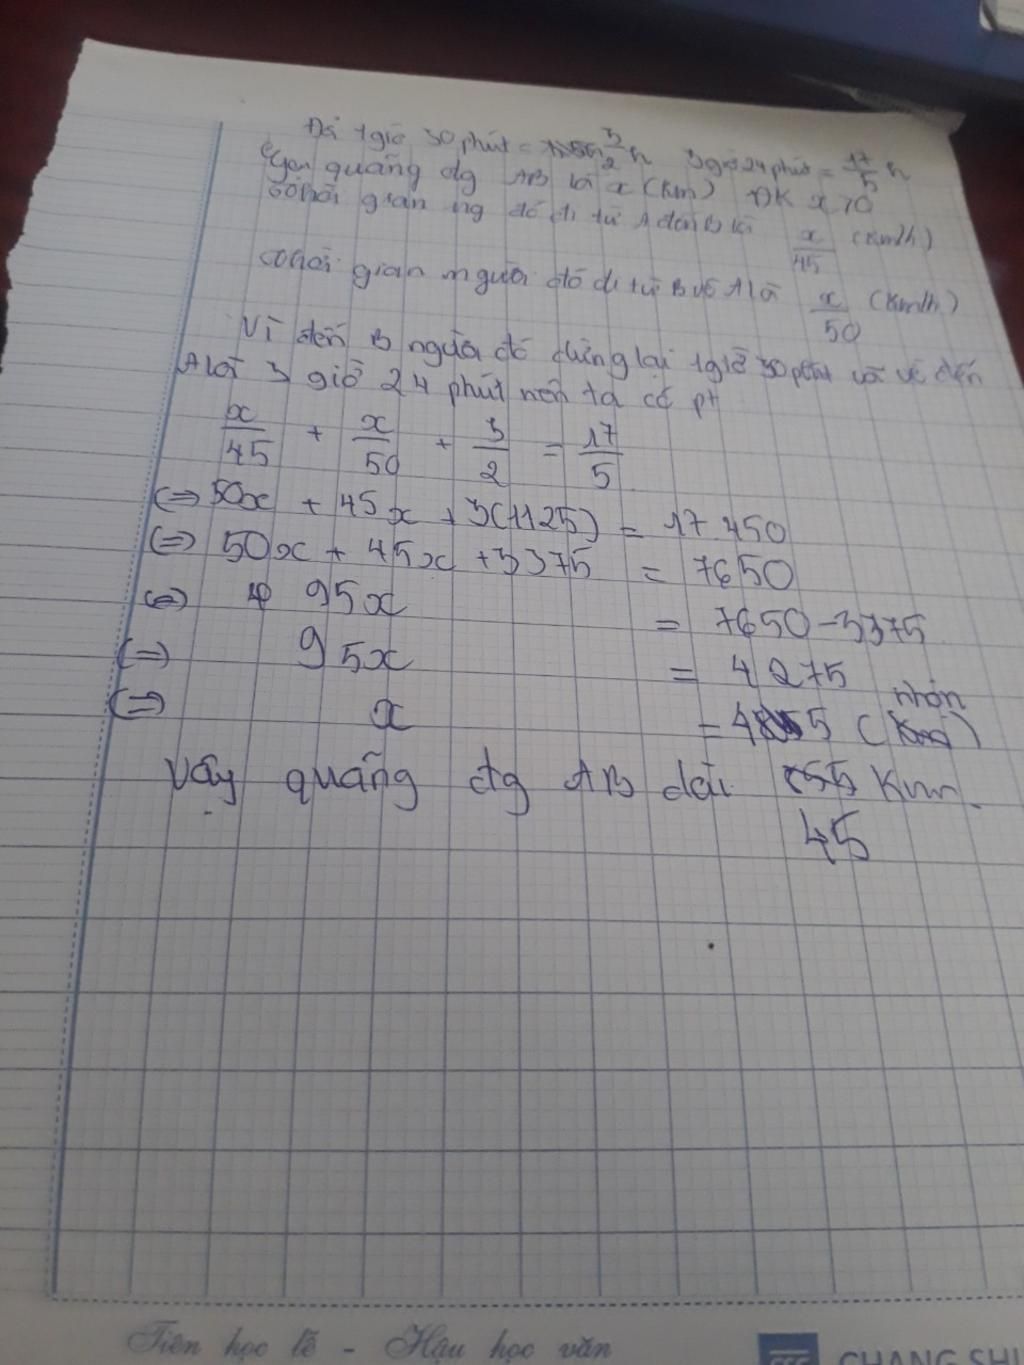 Đổi 1 giờ 30 phút = 3/2 h 3 giờ 24 phút = 17/5 h
Gọi quãng đg AB là x (km) ĐK x > 0
Thời gian ng đó đi từ A đến B là x/45 (km/h)
Thời gian người đó đi từ B về A là x/50 (km/h)
Vì đến B người đó dừng lại 1 giờ 30 phút và về đến
A là 3 giờ 24 phút nên ta có pt
x/45 + x/50 + 3/2 = 17/5
(=) 50x + 45x + 3(1125) = 17.450
(=) 50x + 45x + 3375 = 7650
(=) 95x = 7650 - 3375
(=) 95x = 4275
(=) x = 45 (nhận)
Vậy quãng đg AB dài 45 Km.
Tiên học lễ - Hậu học văn